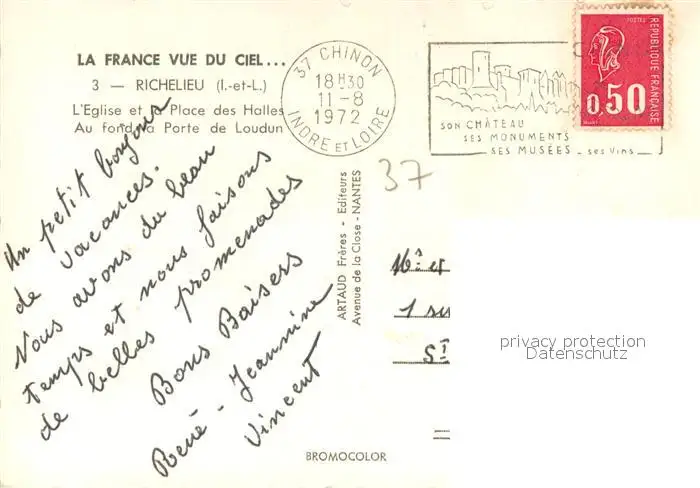 LA FRANCE VUE DU CIEL...
3 — RICHELIEU (I.-et-L.)
L'Eglise et la Place des Halles
Au fond la Porte de Loudun
Un petit bonjour
de vacances.
Nous avons du beau
temps et nous faisons
de belles promenades
Bons Baisers
René - Jeannine
Vincent
37 CHINON
18H30
11-8
1972
INDRE ET LOIRE
SON CHÂTEAU
SES MONUMENTS
SES MUSÉES - ses vins
POSTES
REPUBLIQUE FRANÇAISE
0,50
37
ARTAUD Frères - Editeurs
Avenue de la Close - NANTES
et
1
St
privacy protection
Datenschutz
BROMOCOLOR